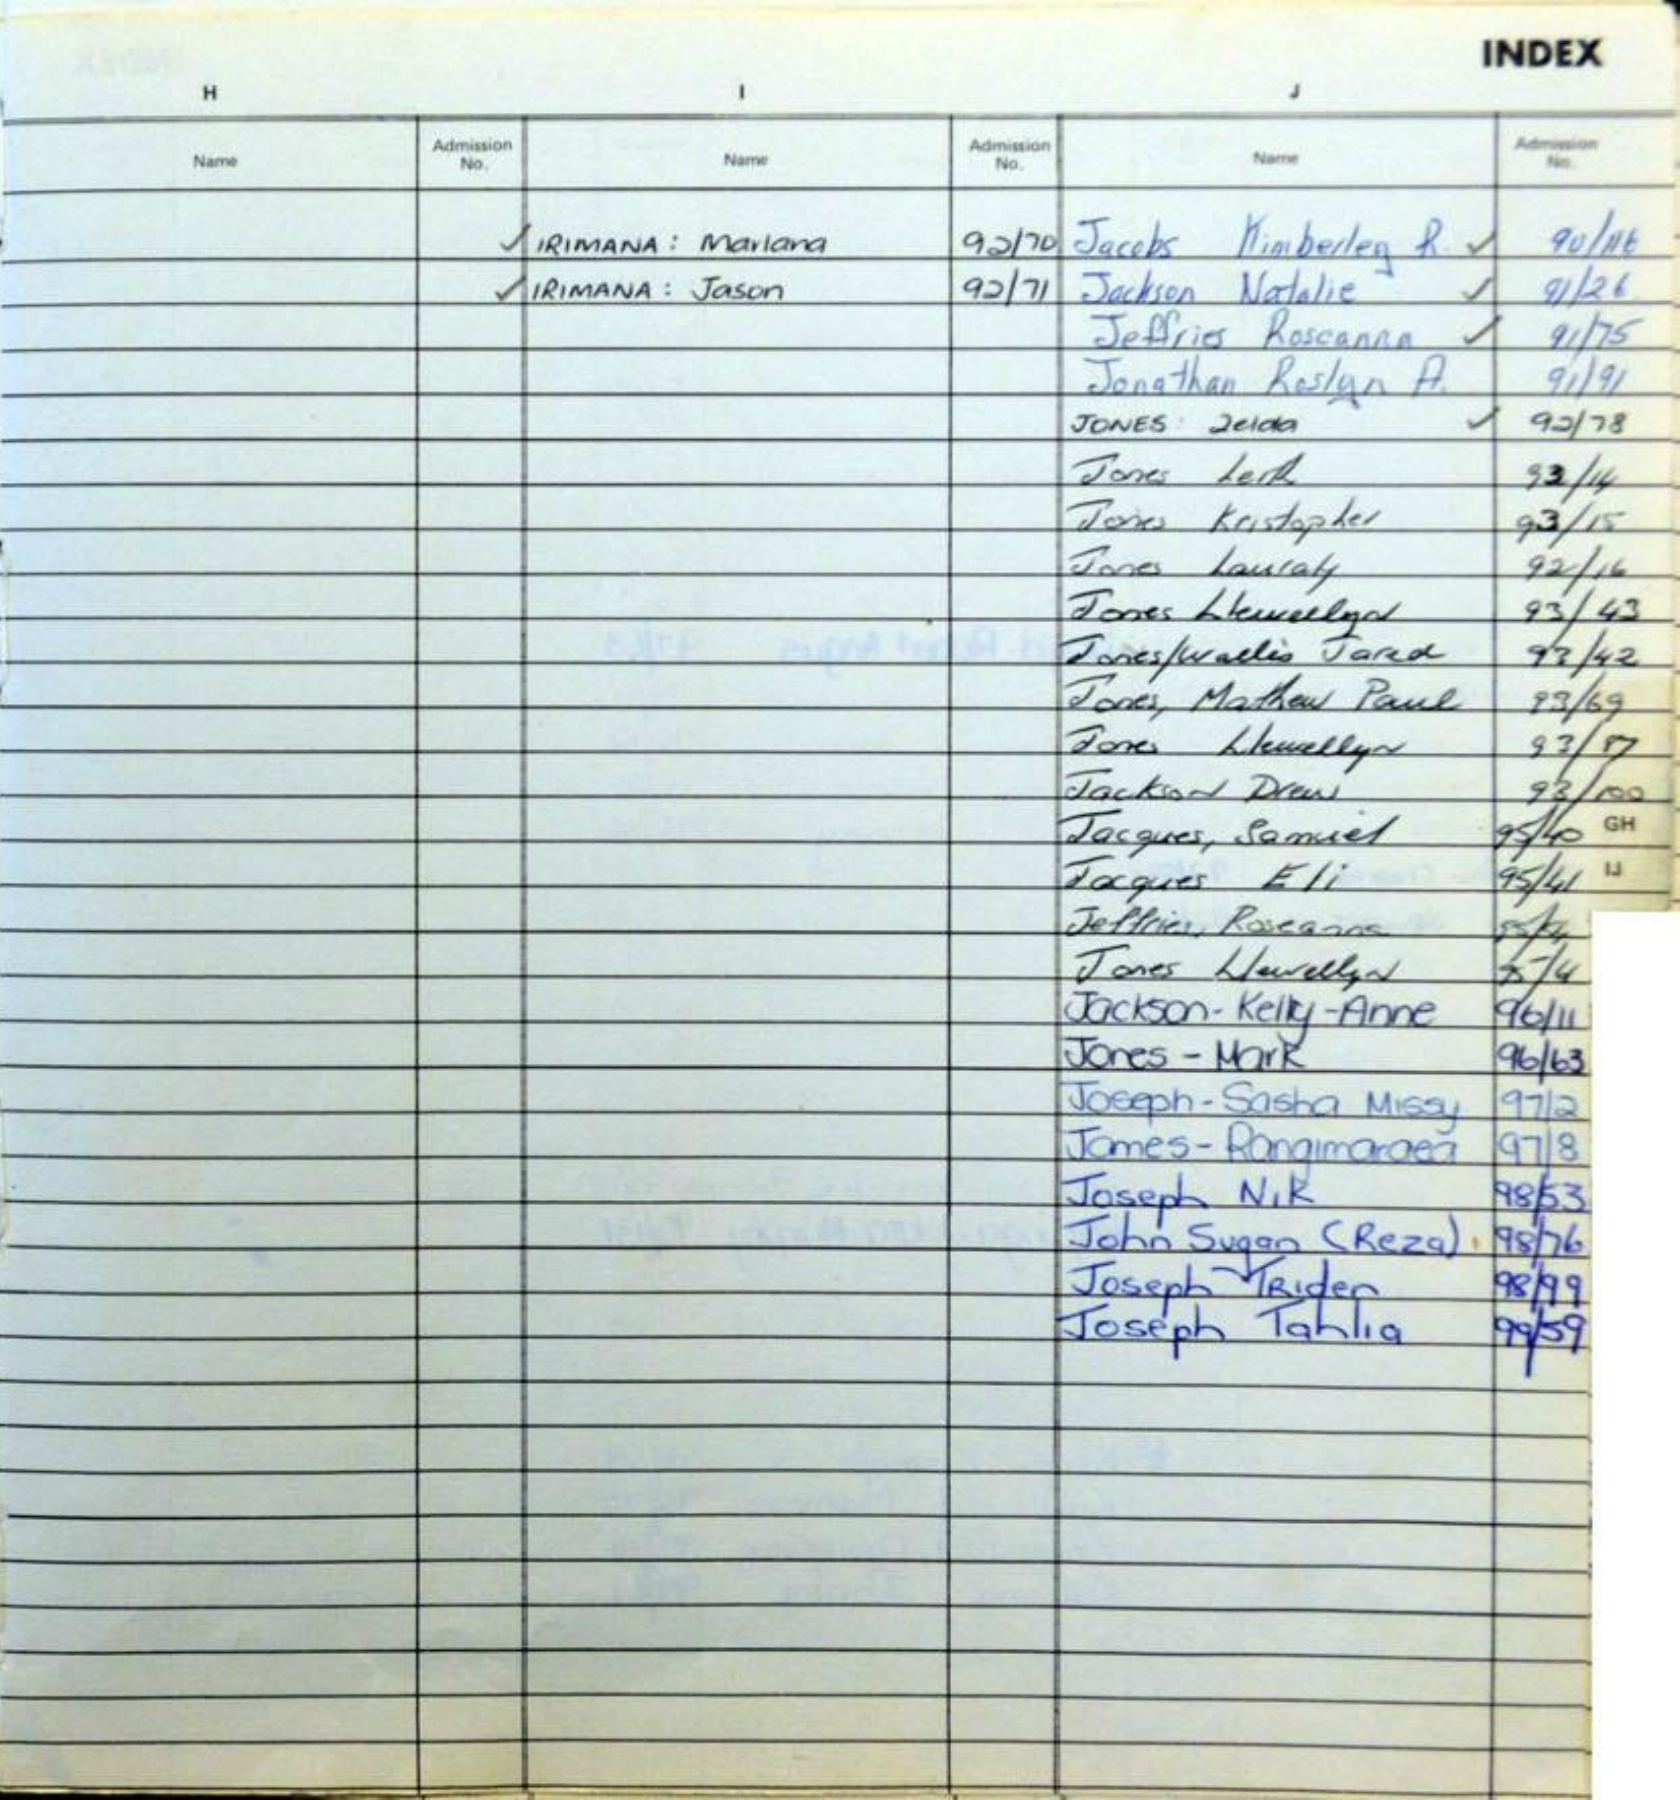 INDEX
H I J
Name Admission No. Name Admission No. Name Admission No.
✓ IRIMANA: Mariana 92/70 Jacobs Kimberley R. ✓
✓ IRIMANA: Jason 92/71 Jackson Natalie ✓ 91/26
Jeffries Roseanna ✓ 91/75
Jonathan Roslyn A. 91/91
JONES: Zelda ✓ 92/78
Jones 93/14
Jones Kristopher 93/15
Jones 92/16
Jones Llewellyn 93/43
Jones/Wallis Jared 93/42
Jones, Mathew Paul 93/69
Jones Llewellyn
Jackson Drew 93/100
Jacques, Samuel 95/40 GH
Jacques Eli 95/41 IJ
Jeffries, Roseanna
Jones Llewellyn
Jackson-Kelly-Anne 96/11
Jones - Mark 96/63
Joseph-Sasha Missy 97/2
James-Rangimaraea 97/8
Joseph Nik 98/53
John Sugan (Reza). 98/76
Joseph Triden 98/99
Joseph Tahlia 99/59